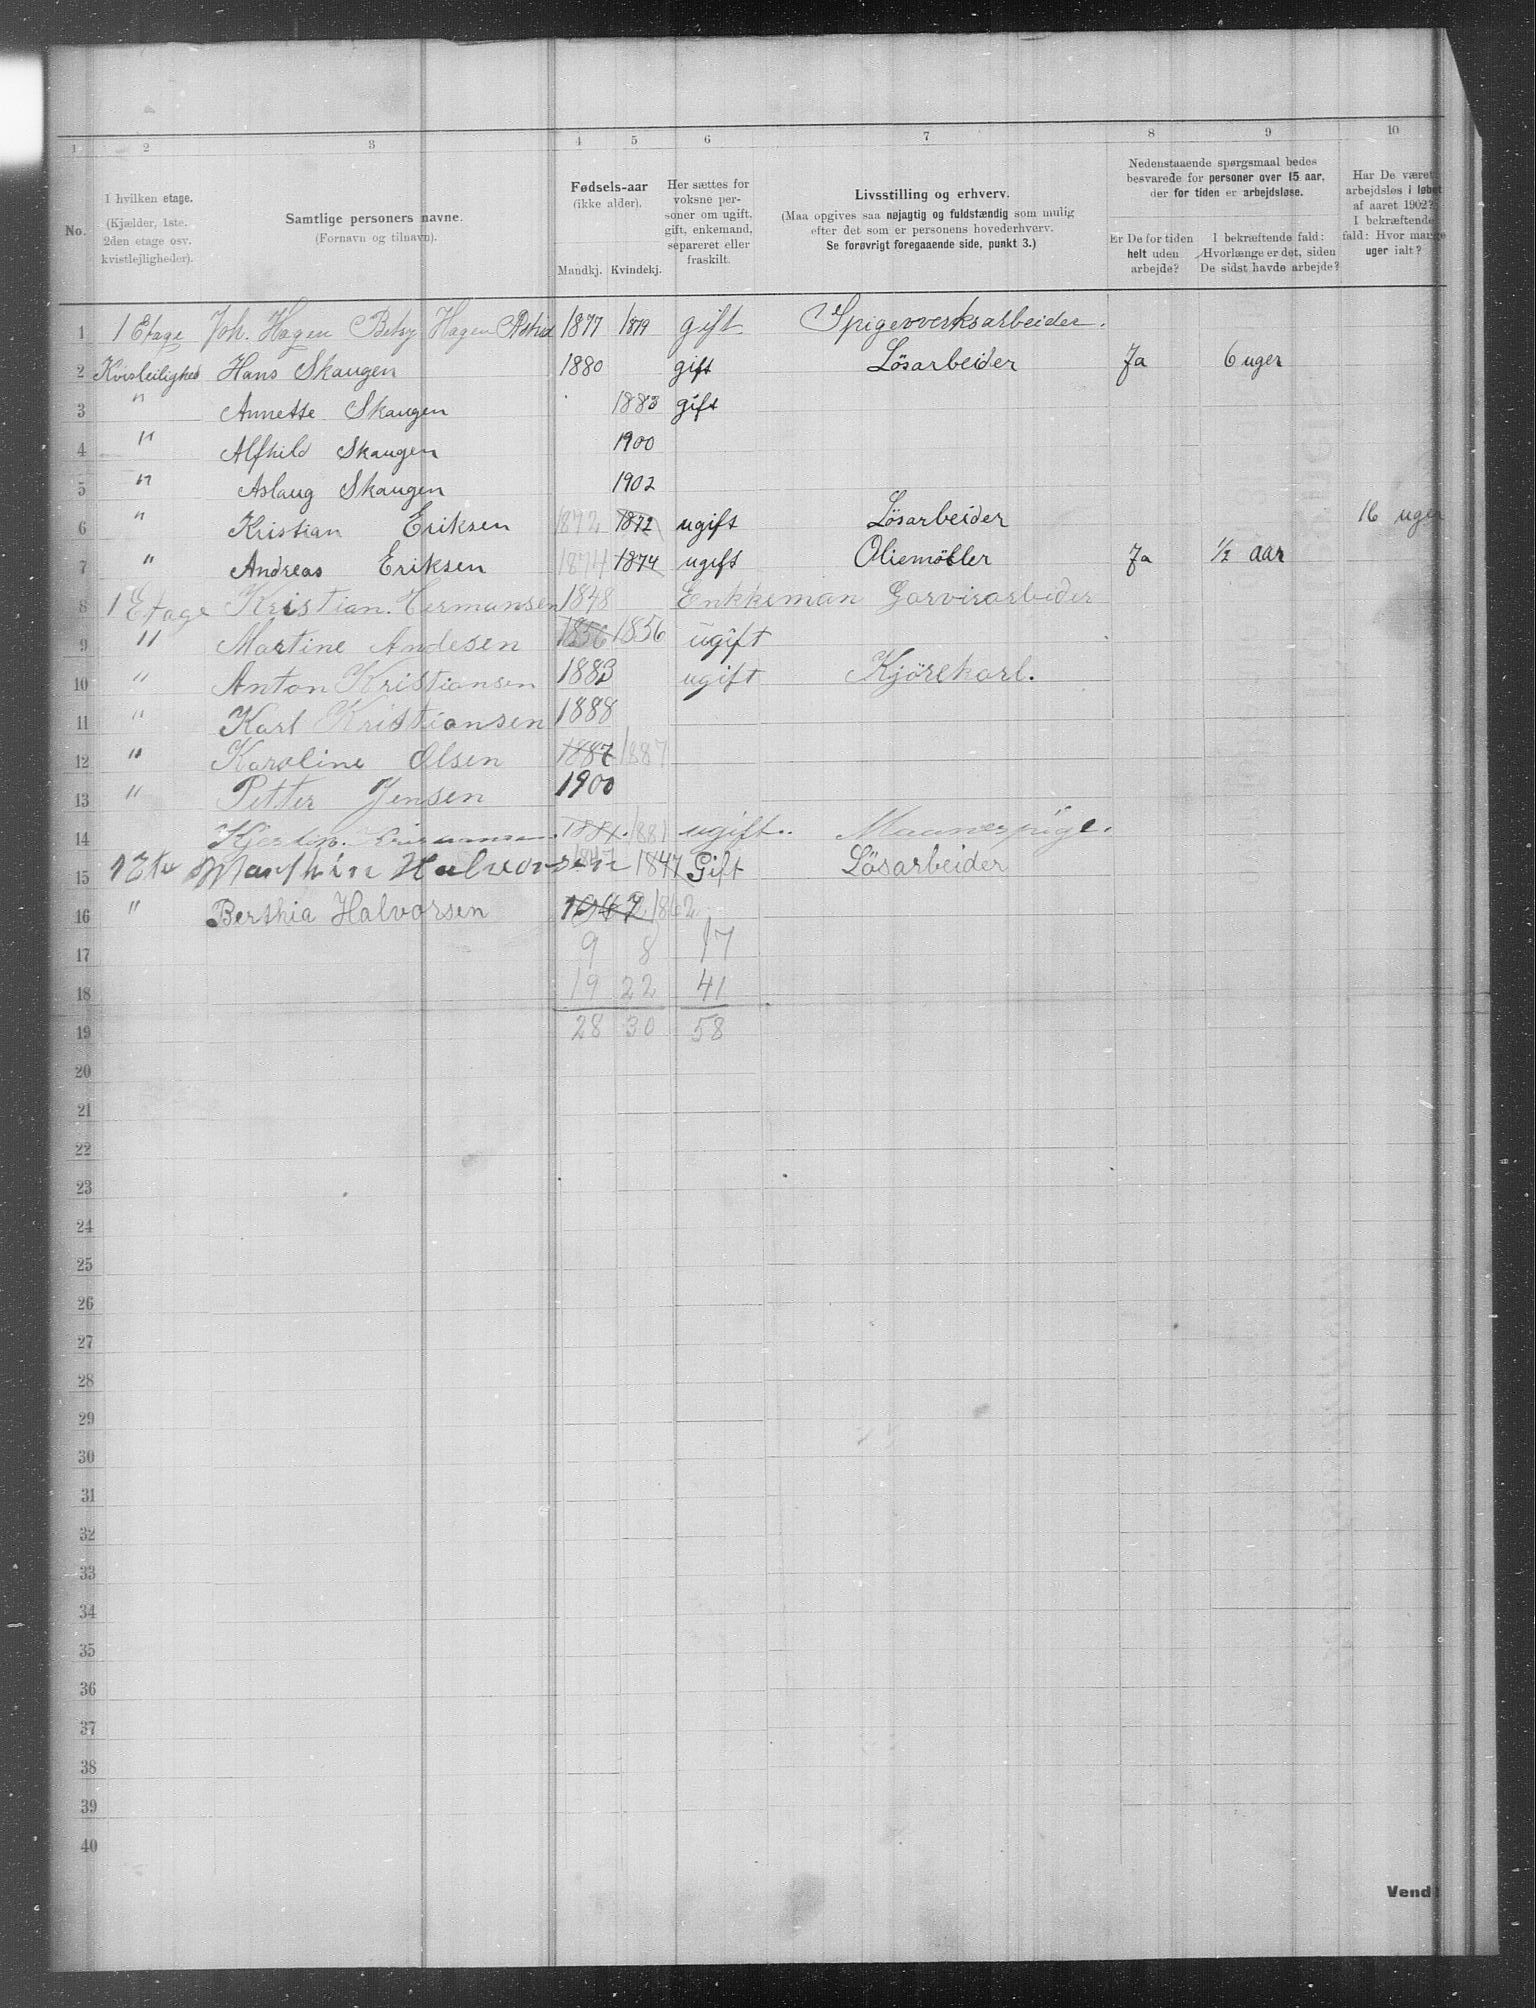 1 2 3 4 5 6 7 8 9 10
No.
I hvilken etage.
(Kjælder, 1ste.
2den etage osv.
kvistlejligheder).
Samtlige personers navne.
(Fornavn og tilnavn).
Fødsels-aar
(ikke alder).
Mandkj. Kvindekj.
Her sættes for
voksne per-
soner om ugift,
gift, enkemand,
separeret eller
fraskilt.
Livsstilling og erhverv.
(Maa opgives saa nøjagtig og fuldstændig som mulig
efter det som er personens hovederhverv.
Se forøvrigt foregaaende side, punkt 3.)
Nedenstaaende spørgsmaal bedes
besvarede for personer over 15 aar,
der for tiden er arbejdsløse.
Er De for tiden
helt uden
arbejde?
I bekræftende fald:
Hvorlænge er det, siden
De sidst havde arbejde?
Har De været
arbejdsløs i løbet
af aaret 1902?
I bekræftende
fald: Hvor mange
uger ialt?
1 1 Etage Joh. Hagen Betsy Hagen Astrid 1877 1879 gift Spigerverksarbeider.
2 Kvisleilighed Hans Skaugen 1880 gift Lösarbeider Ja 6 uger
3 " Annette Skaugen 1883 gift
4 " Alfhild Skaugen 1900
5 " Aslaug Skaugen 1902
6 " Kristian Eriksen 1872 1872 ugift Lösarbeider 16 uger
7 " Andreas Eriksen 1874 1874 ugift Oliemöller Ja 1/2 aar
8 1 Etage Kristian. Hermansen 1848 Enkkeman Garvirarbeider
9 " Martine Andesen 1856 1856 ugift
10 " Anton Kristiansen 1883 ugift Kjörekarl.
11 " Karl Kristiansen 1888
12 " Karoline Olsen 1887 1887
13 " Petter Jensen 1900
14 1881. 1881 ugift.. Maanespige.
15 1 Ete Marthin Halvorsen 1847 1847 Gift Lösarbeider
16 " Berthia Halvorsen 1862
17 9 8 17
18 19 22 41
19 28 30 58
20
21
22
23
24
25
26
27
28
29
30
31
32
33
34
35
36
37
38
39
40
Vend!